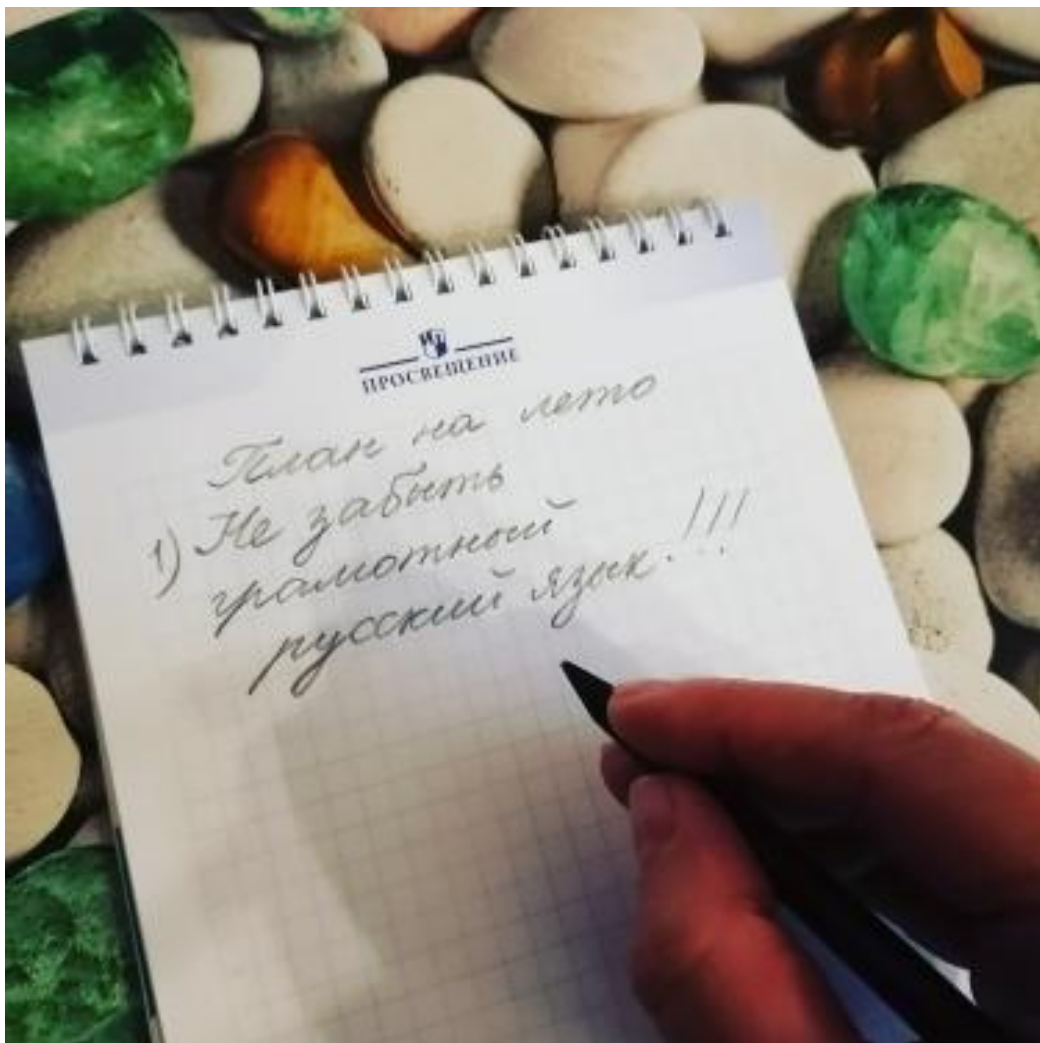 ПРОСВЕЩЕНИЕ
План на лето
1) Не забыть
грамотный
русский язык!!!